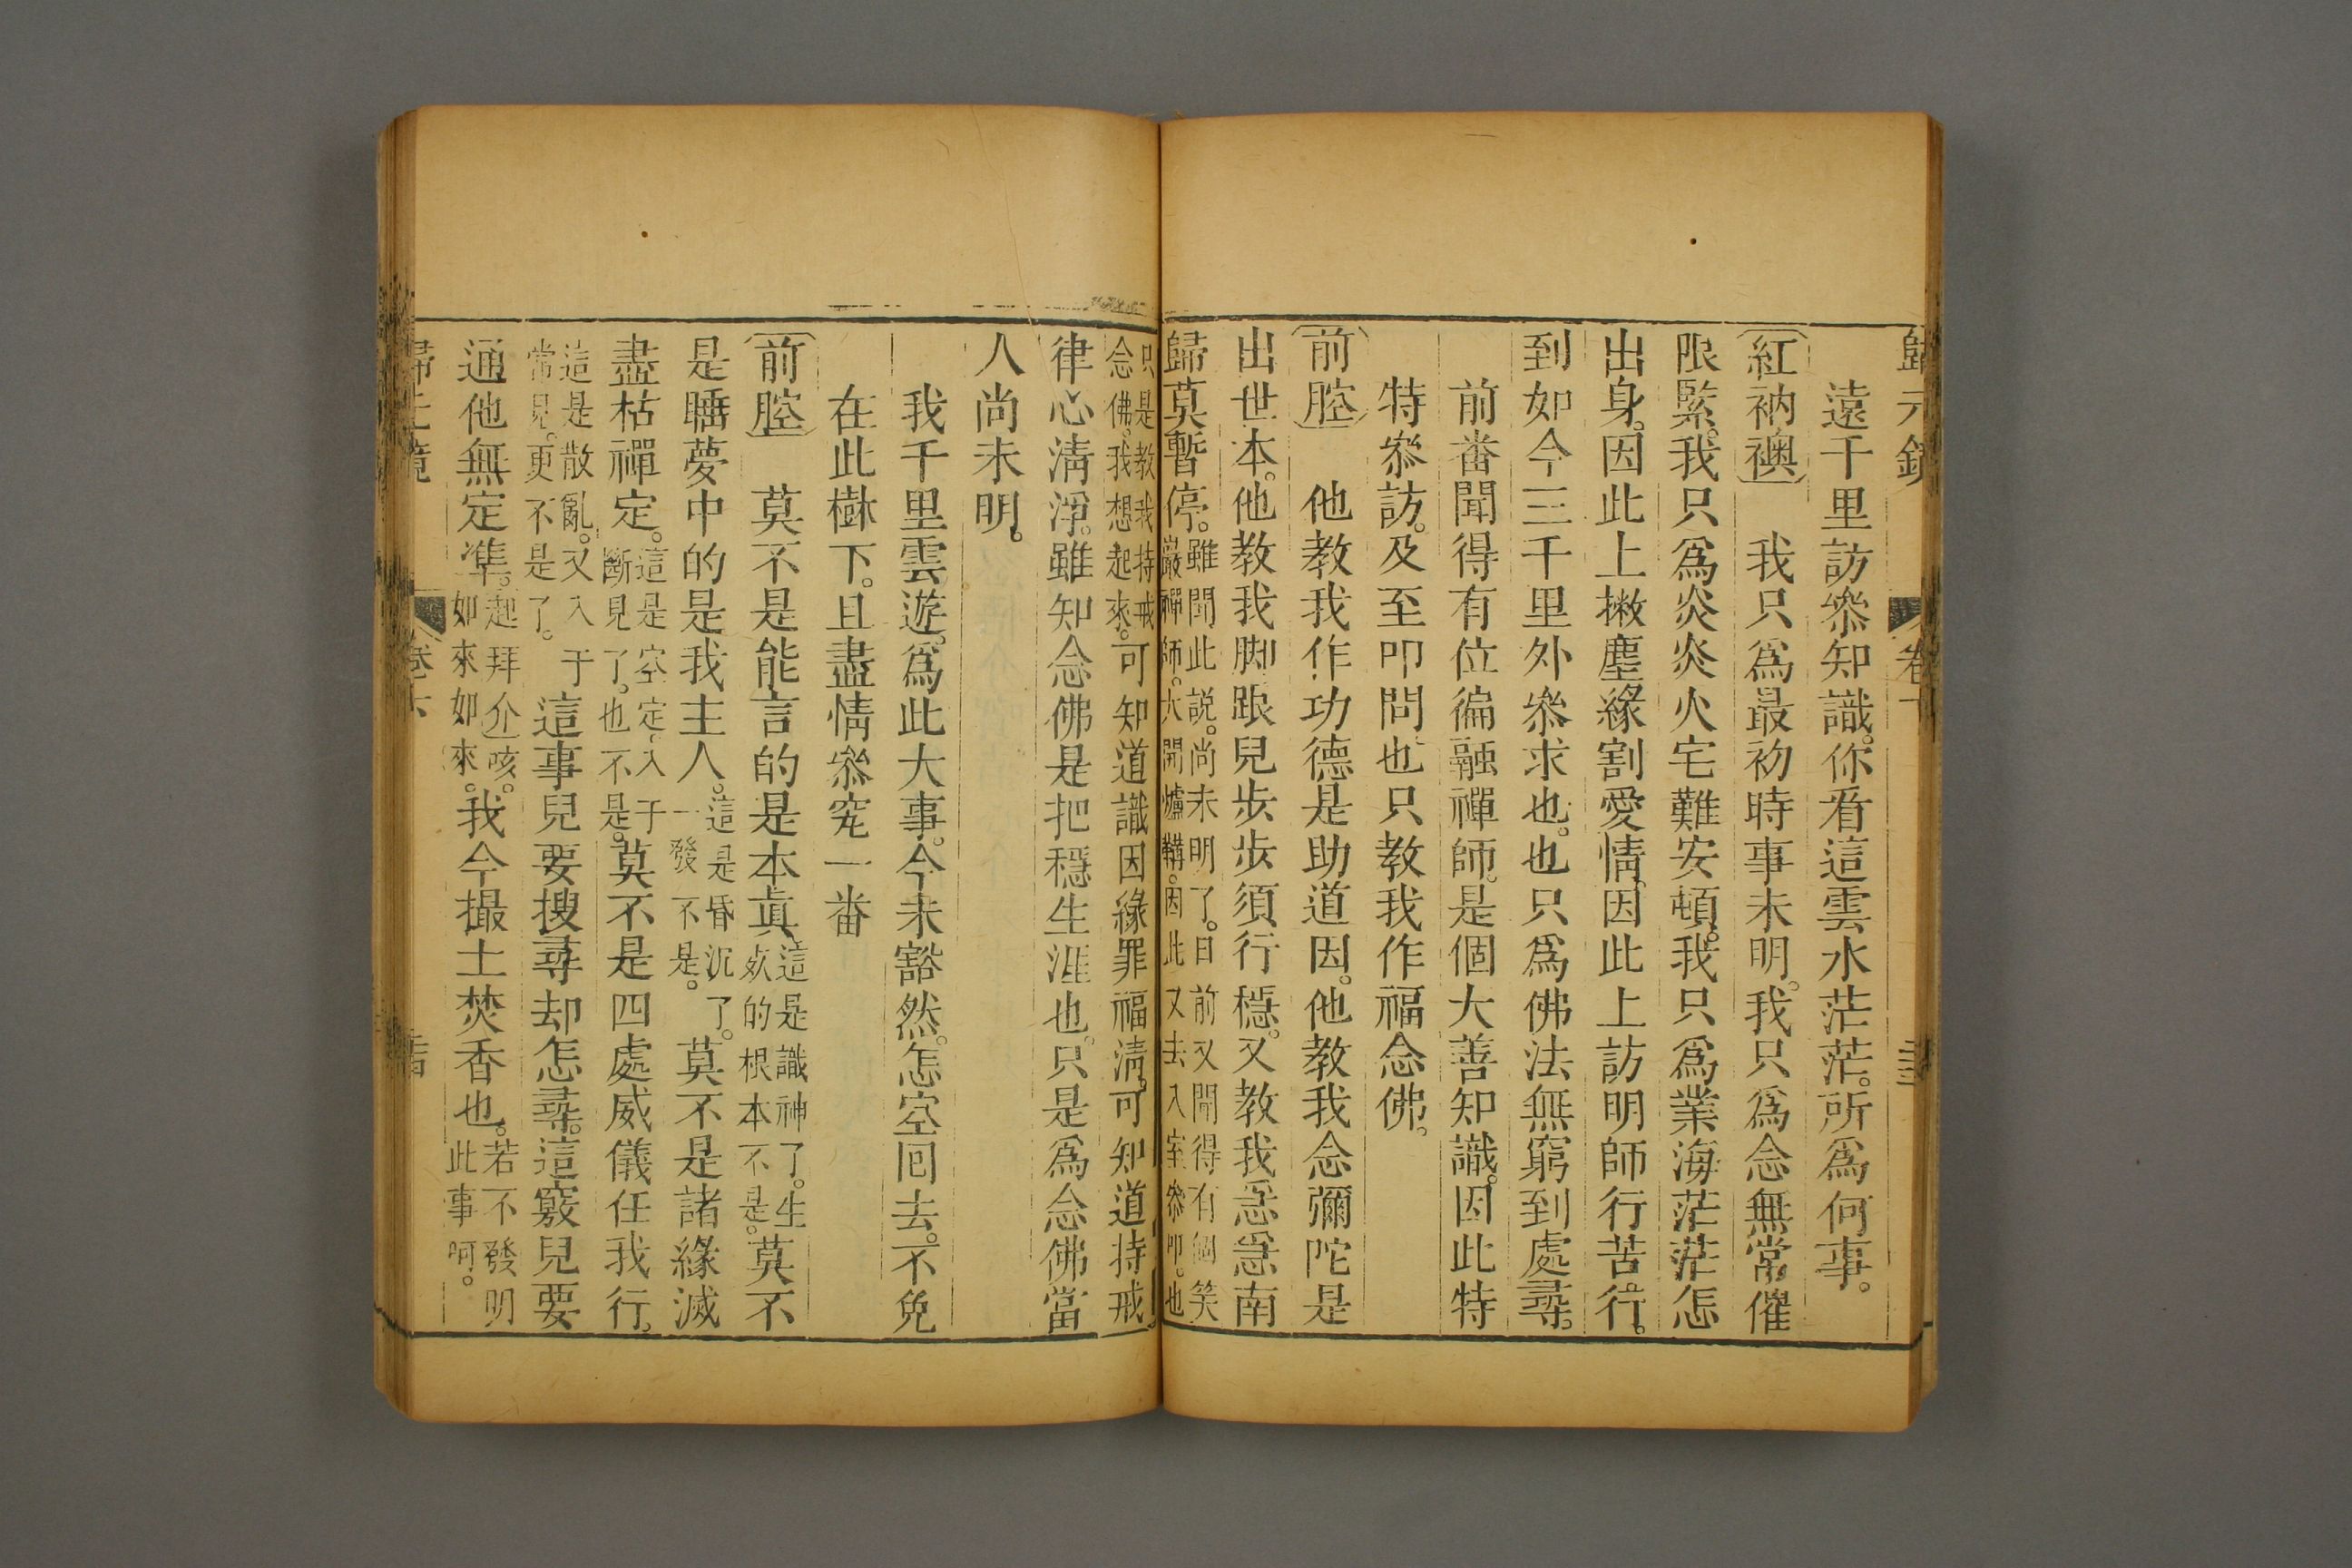 歸元鏡
卷下
遠千里訪叅知識。你看這雲水茫茫。所爲何事。
紅衲襖 我只爲最初時事未明。我只爲念無常催
限緊。我只爲炎炎火宅難安頓。我只爲業海茫茫怎
出身。因此上撇塵緣割愛情。因此上訪明師行苦行。
到如今三千里外叅求也。也只爲佛法無窮到處尋。
前番聞得有位徧融禪師。是個大善知識。因此特
特叅訪。及至叩問也只教我作福念佛。
前腔 他教我作功德是助道因。他教我念彌陀是
出世本。他教我脚跟兒步步須行穩。又教我急急南
歸莫暫停。雖聞此說。尚未明了。日前又聞得有個笑
巖禪師。大開爐鞲。因此又去入室叅叩。也
只是教我持戒
念佛。我想起來。可知道識因緣罪福淸。可知道持戒
律心淸淨。雖知念佛是把穩生涯也。只是爲念佛當
人尚未明。
我千里雲遊。爲此大事。今未豁然。怎空囘去。不免
在此樹下。且盡情叅究一番
前腔 莫不是能言的是本眞。這是識神了。生
死的根本不是。莫不
是睡夢中的是我主人。這是昏沉了。
一發不是。莫不是諸緣滅
盡枯禪定。這是空定。入于
斷見了。也不是。莫不是四處威儀任我行。
這是散亂。又入于
常見。更不是了。這事兒要搜尋却怎尋。這竅兒要
通他無定準。起拜介咳。
如來如來。我今撮土焚香也。若不發明
此事呵。
卷下